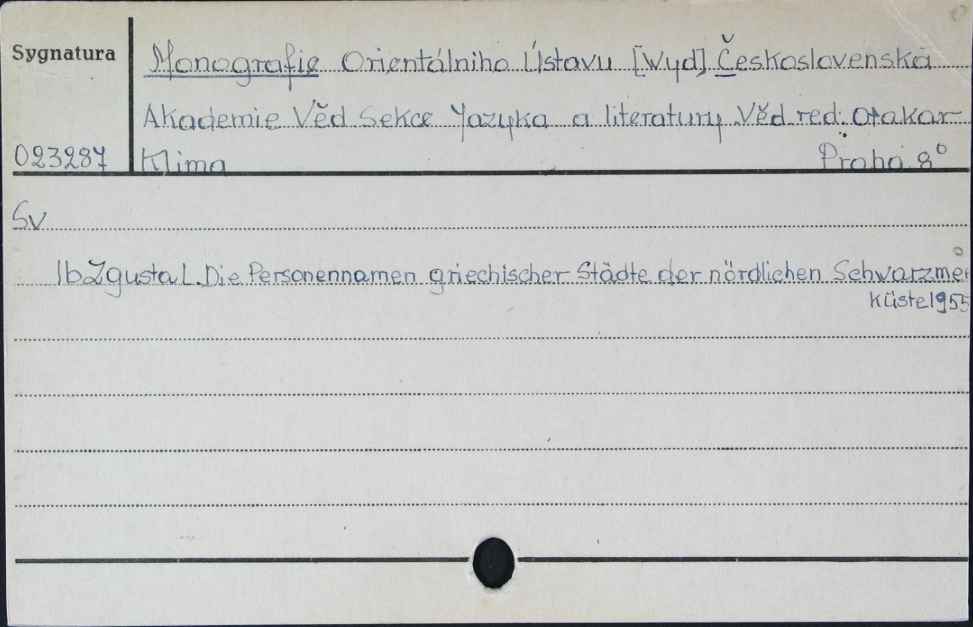 Sygnatura
Monografie Orientálniho Ústavu [Wyd] Československá
Akademie Věd Sekce Jazyka a literatury Věd red. Otakar
023287 Klima Praha 8°
Sv
16 Zgusta L. Die Personennamen griechischer Städte der nördlichen Schwarzmee
küste 1955